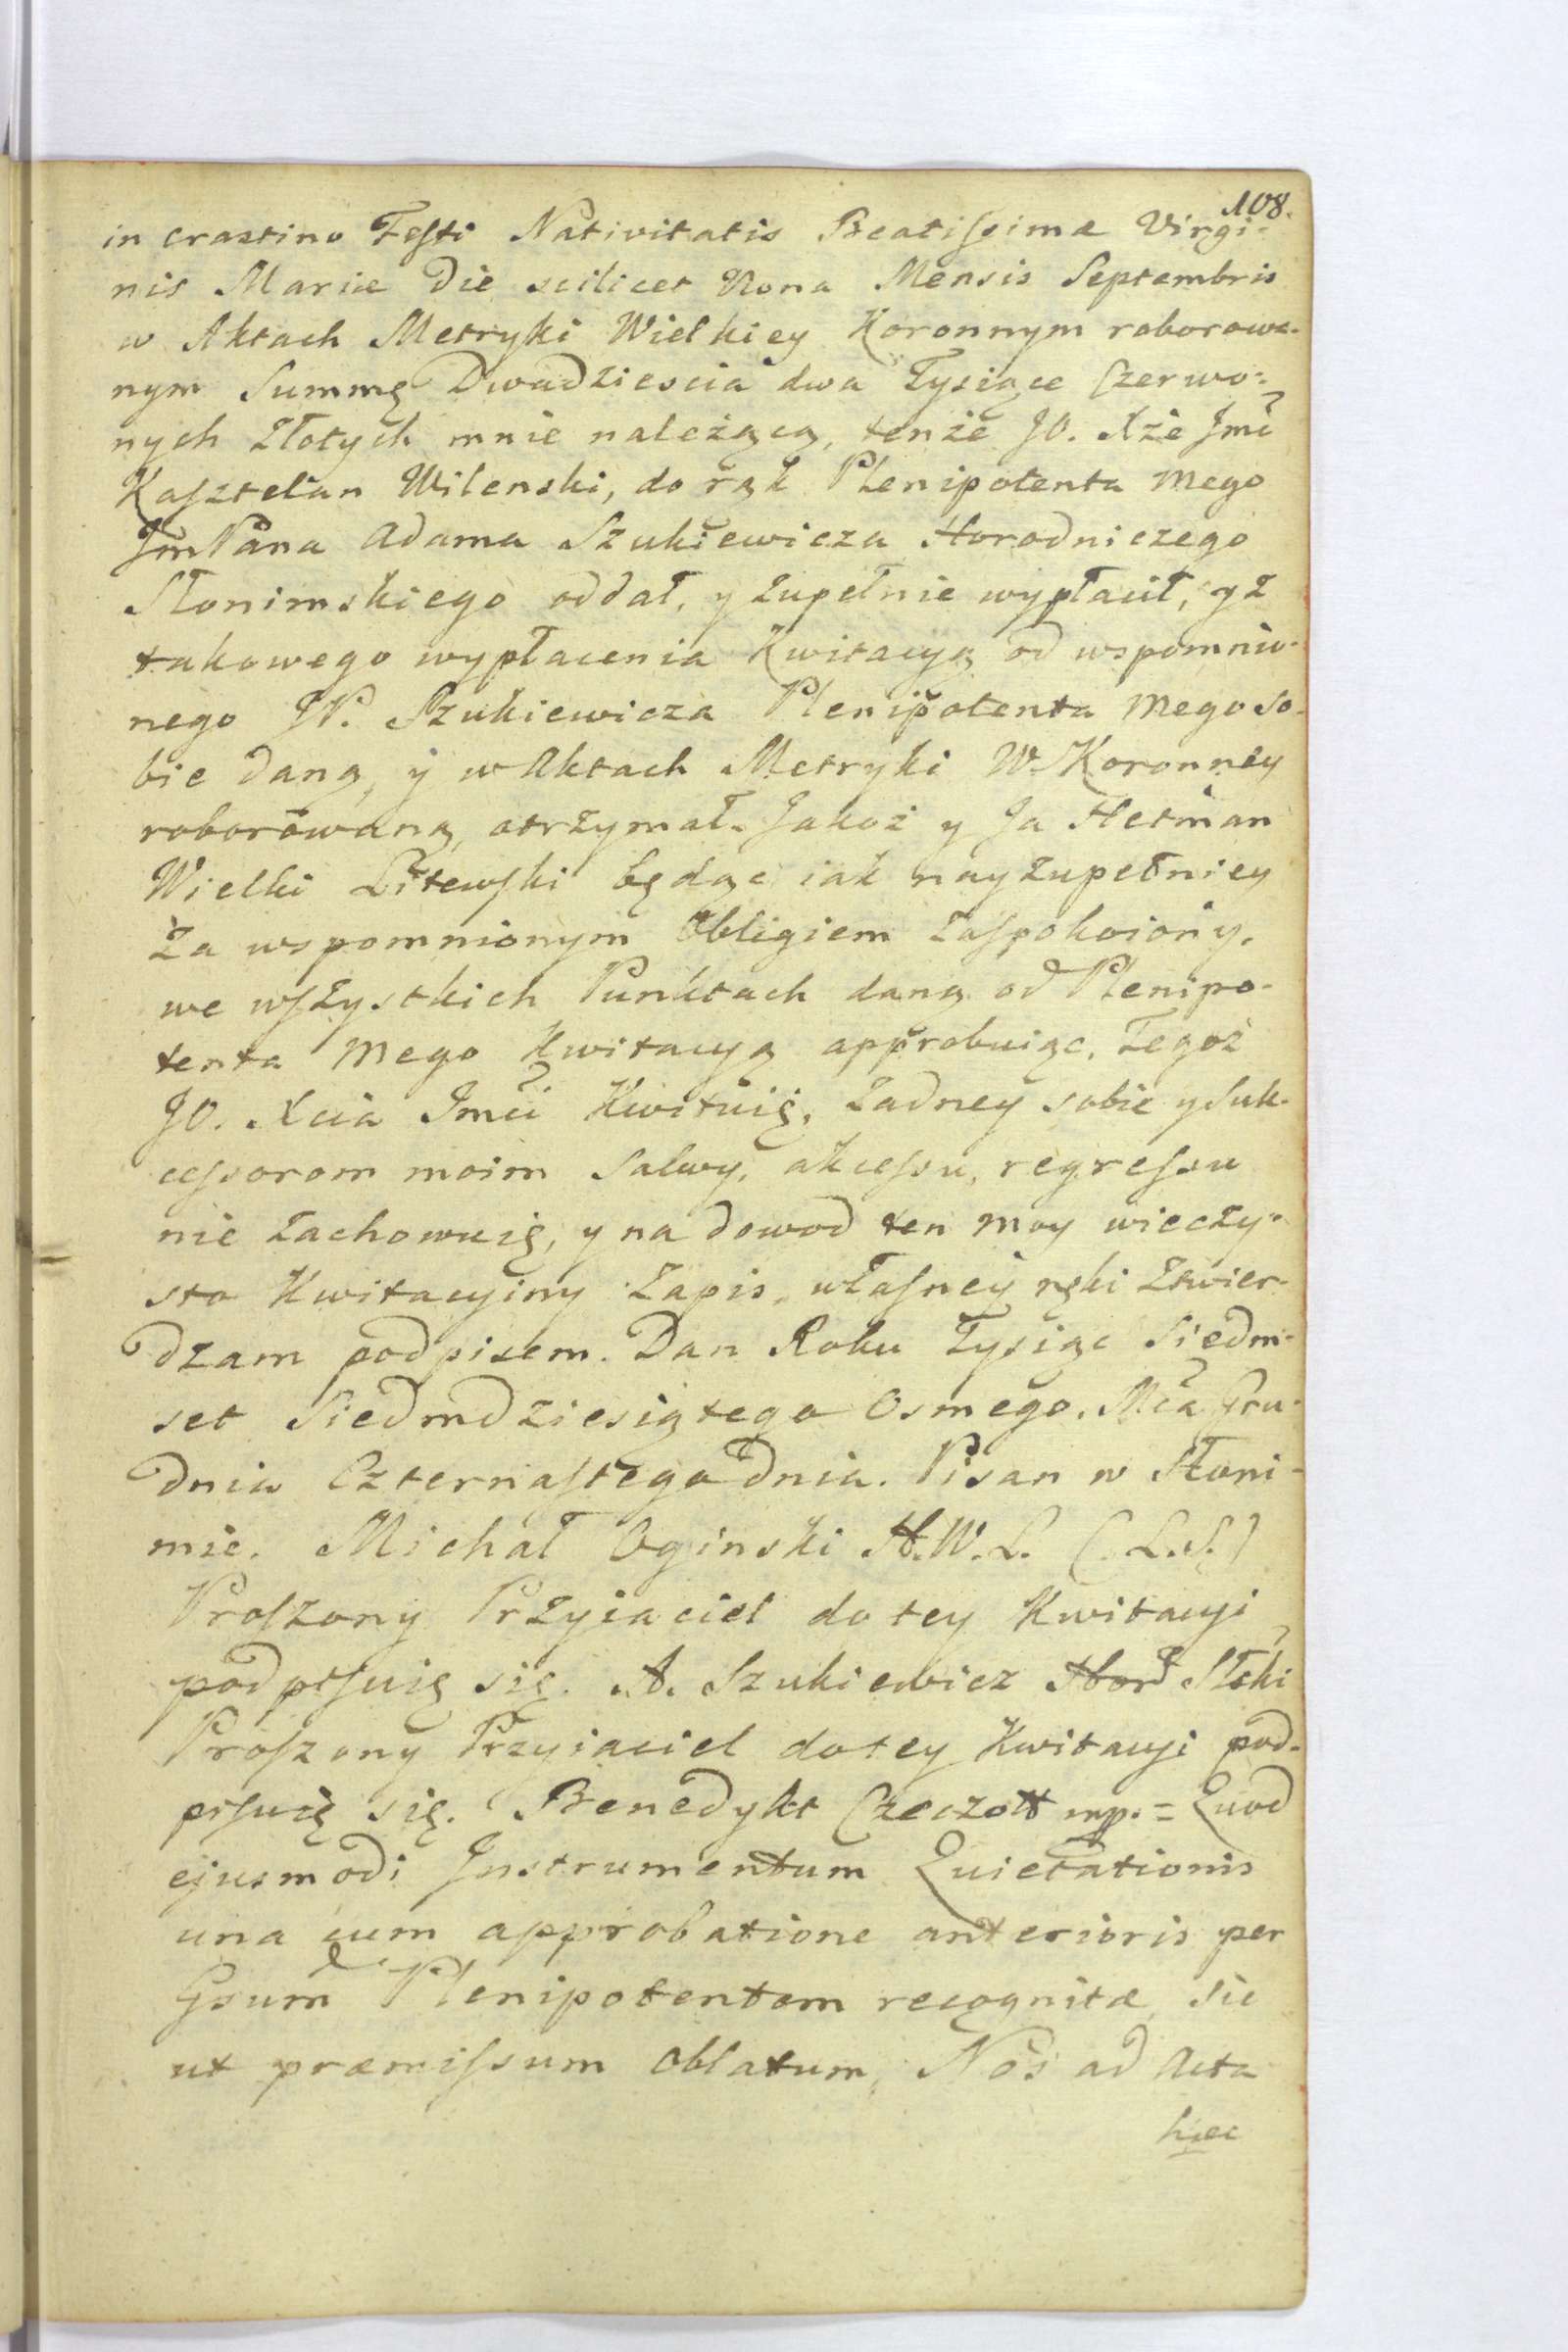 108.
in crastino Festi Nativitatis Beatissimæ Virgi-
nis Mariæ Die scilicet Nona Mensis Septembris
w Aktach Metryki Wielkiey Koronnym roborowa-
nym Summę Dwadziescia dwa Tysiące Czerwo-
nych Złotych mnie należącą, tenże JO. Xże Jmć
Kasztelan Wilenski, do rąk Plenipotenta mego
JmPana Adama Szukiewicza Horodniczego
Słonimskiego oddał, y zupełnie wypłacił, y z
takowego wypłacenia Kwitacyą od wspomnio-
nego JP. Szukiewicza Plenipotenta mego so-
bie daną, y w Aktach Metryki W. Koronney
roborowaną, otrzymał. Jakoż y Ja Hetman
Wielki Litewski będąc iak nayzupełniey
Za wspomnionym Obligiem zaspokoiony,
we wszystkich Punktach daną od Plenipo-
tenta mego Kwitacyą approbuiąc, Tegoż
JO. Xcia Jmći Kwituię, Żadney sobie y Suk-
cessorom moim Salwy, akcessu, regressu
nie zachowuię, y na dowod ten moy wieczy-
sto Kwitacyiny Zapis, własney ręki ztwier-
dzam podpisem. Dan Roku Tysiąc Siedm-
set Siedmdziesiątego Osmego. Mca Gru-
dnia Czternastego Dnia. Pisan w Słoni-
mie. Michał Oginski H.W.L. (L.S.)
Proszony Przyiaciel do tey Kwitacyi
podpisuię się. A. Szukiewicz Hord Słski
Proszony Przyiaciel do tey Kwitacyi pod-
pisuię się. Benedykt Czeczott mp. = Quod
ejusmodi Instrumentum Quietationis
una cum approbatione anterioris per
Gsum Plenipotentem recognitæ, sic
ut præmissum oblatum, Nos ad Acta
hæc